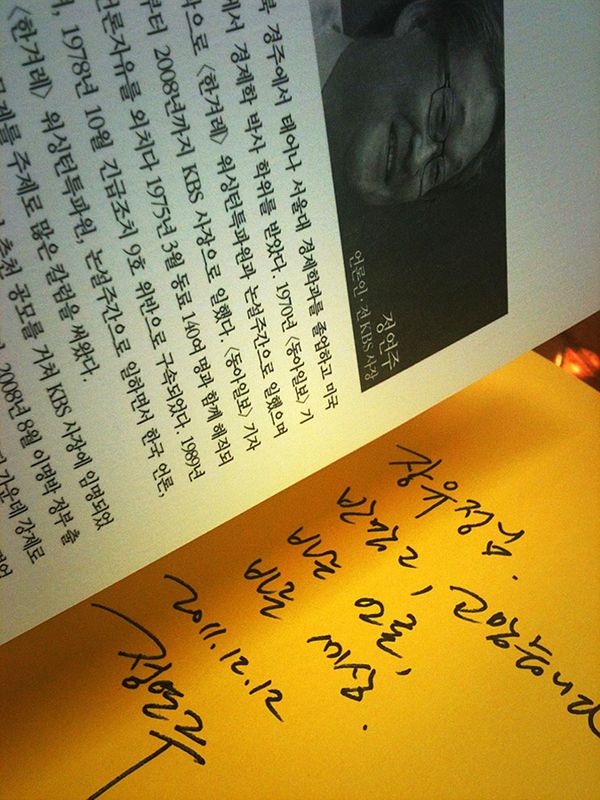 정연주
언론인·전 KBS 사장
경주에서 태어나 서울대 경제학과를 졸업하고 미국
에서 경제학 박사 학위를 받았다. 1970년 〈동아일보〉 기
으로 〈한겨레〉 워싱턴특파원과 논설주간으로 일했으며
부터 2008년까지 KBS 사장으로 일했다. 〈동아일보〉 기자
언론자유를 외치다 1975년 3월 동료 140여 명과 함께 해직되
1978년 10월 긴급조치 9호 위반으로 구속되었다. 1989년
〈한겨레〉 워싱턴특파원, 논설주간으로 일하면서 한국 언론,
문제를 주제로 많은 칼럼을 써왔다.
추천 공모를 거쳐 KBS 사장에 임명되었
2008년 8월 이명박 정부 출
가운데 강제로
장유정님.
고맙습니다
세상.
2011.12.12
정연주